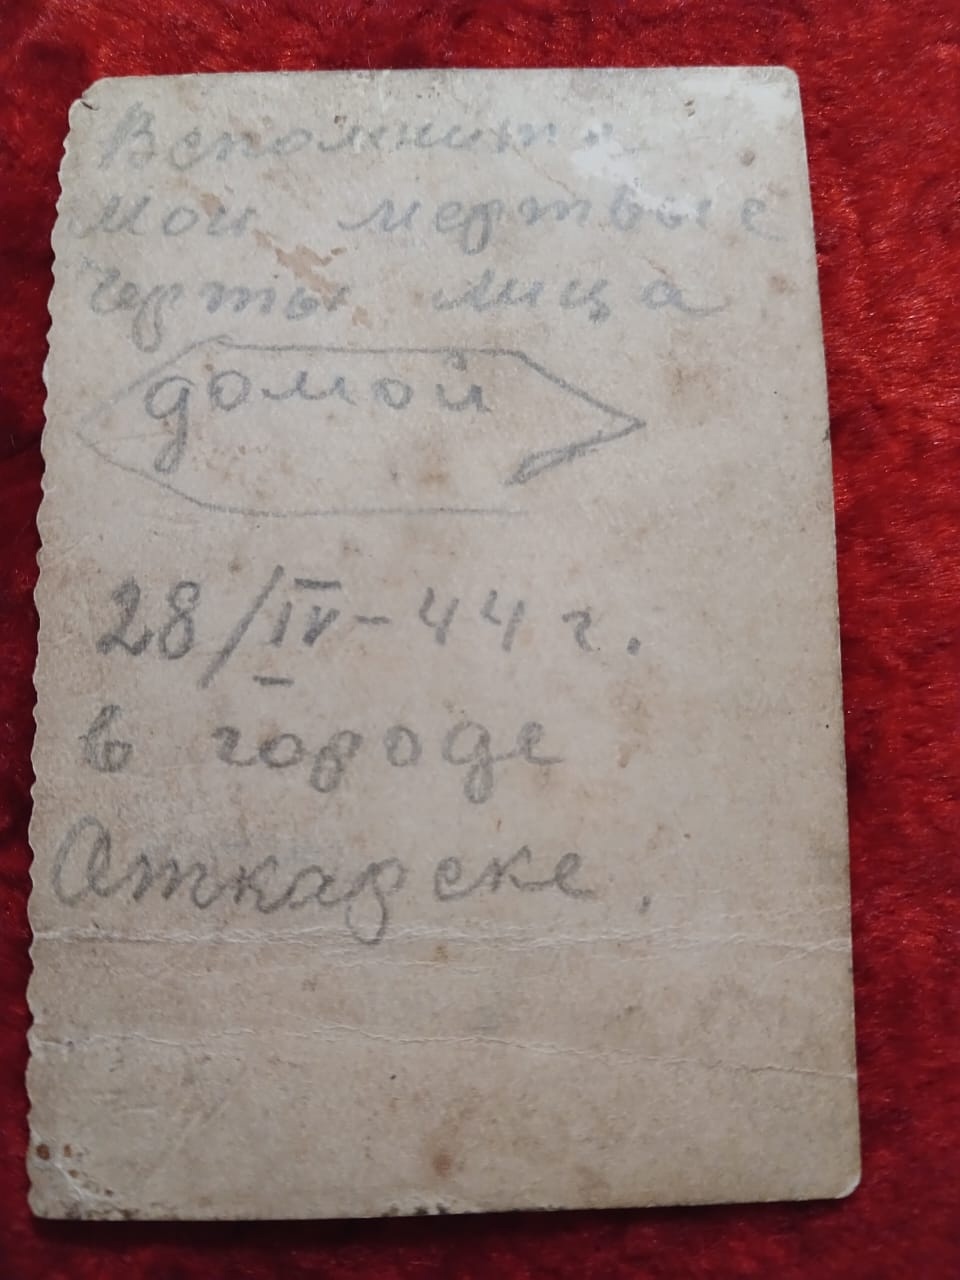 Вспомните
мои мертвые
черты лица
домой
28/IV-44 г.
в городе
Аткарске.